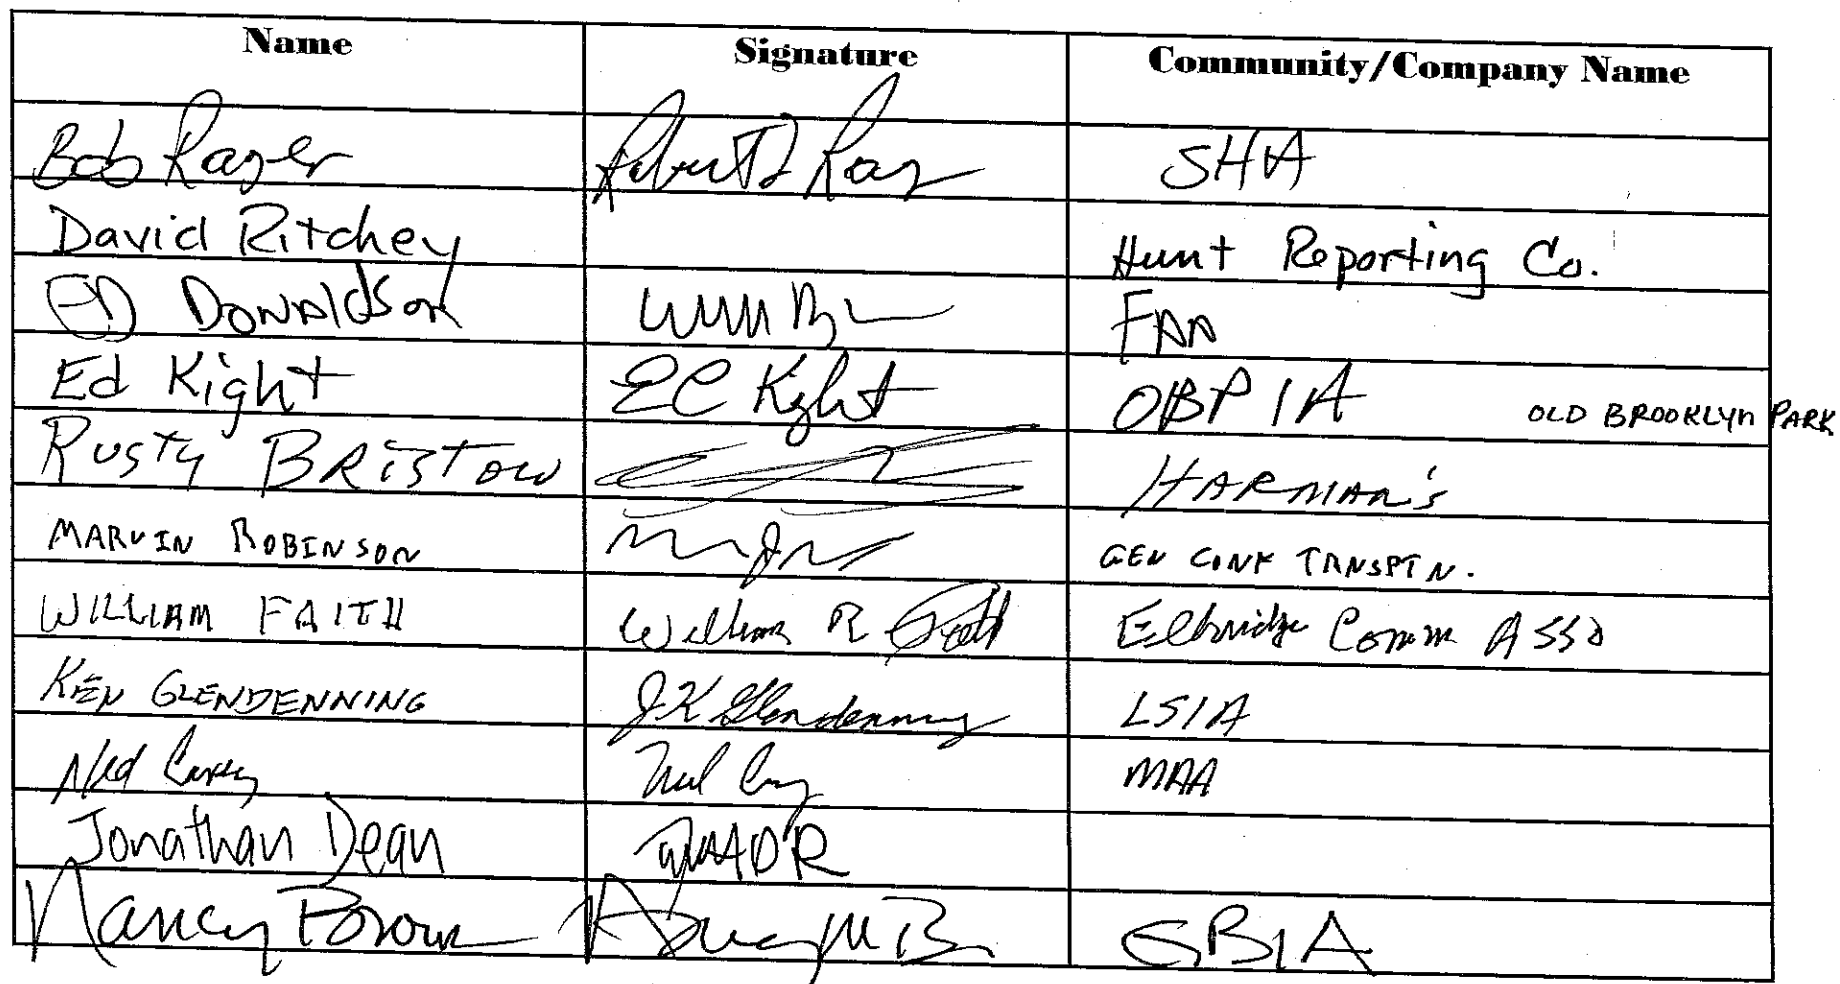 Name Signature Community/Company Name
Bob Rager SHA
David Ritchey Hunt Reporting Co.
ED DONALDSON FAA
Ed Kight EC Kight OBPIA OLD BROOKLYN PARK
Rusty BRISTOW HARMAN's
MARVIN ROBINSON GEN CONF TRNSPTN.
WILLIAM FAITH William R Faith Elkridge Comm ASSO
KEN GLENDENNING J.K Glendenning LSIA
Ned Carey MAA
Jonathan Dean
Nancy Brown Nancy M GBIA